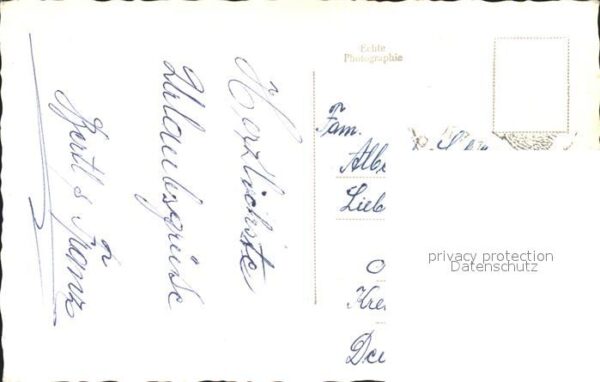 Echte
Photographie
Herzlichste
Urlaubsgrüße
Franz
Fam.
Alb
Lieb
O
Kre
privacy protection
Datenschutz